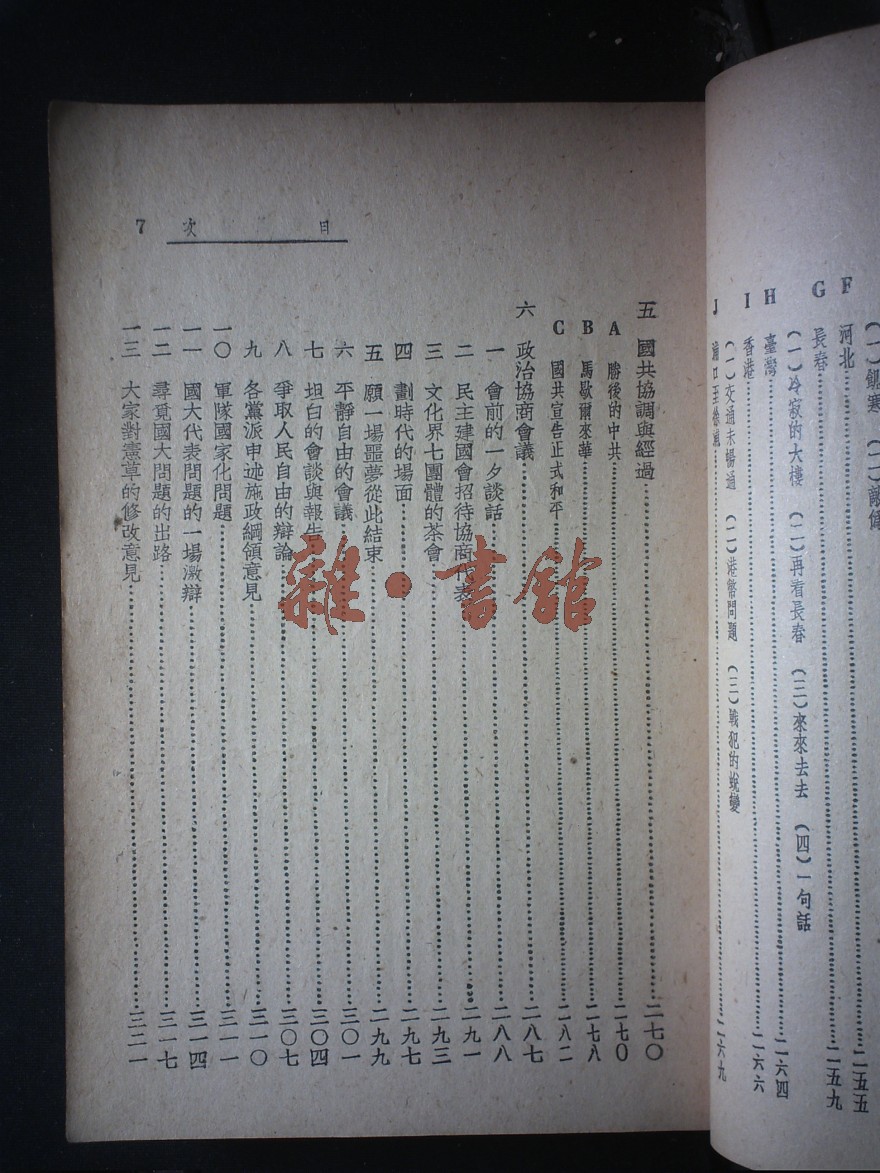 F 河北……二五五
(一)飢寒 (二)敵偽
G 長春……二五九
(一)冷寂的大樓 (二)再看長春 (三)來來去去 (四)一句話
H 臺灣……二六四
I 香港……二六六
(一)交通未暢通 (二)港幣問題 (三)戰犯的蛻變
J 浦口至徐州……二六九
目次 7
五 國共協調與經過……二七〇
A 勝後的中共……二七〇
B 馬歇爾來華……二七八
C 國共宣告正式和平……二八二
六 政治協商會議……二八七
一 會前的一夕談話……二八八
二 民主建國會招待協商代表……二九一
三 文化界七團體的茶會……二九三
四 劃時代的場面……二九七
五 願一場噩夢從此結束……二九九
六 平靜自由的會議……三〇一
七 坦白的會談與報告……三〇四
八 爭取人民自由的辯論……三〇七
九 各黨派申述施政綱領意見……三一〇
一〇 軍隊國家化問題……三一一
一一 國大代表問題的一場激辯……三一四
一二 尋覓國大問題的出路……三一七
一三 大家對憲草的修改意見……三二一
雜·書館